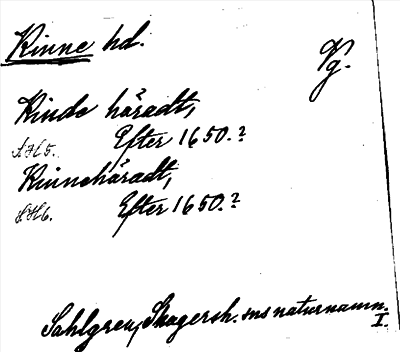 Kinne hd.
Vg.
Kinde häradt,
Efter 1650.?
Kinnehäradt,
Efter 1650.?
Sahlgren, Skagersh. sns naturnamn.
I.